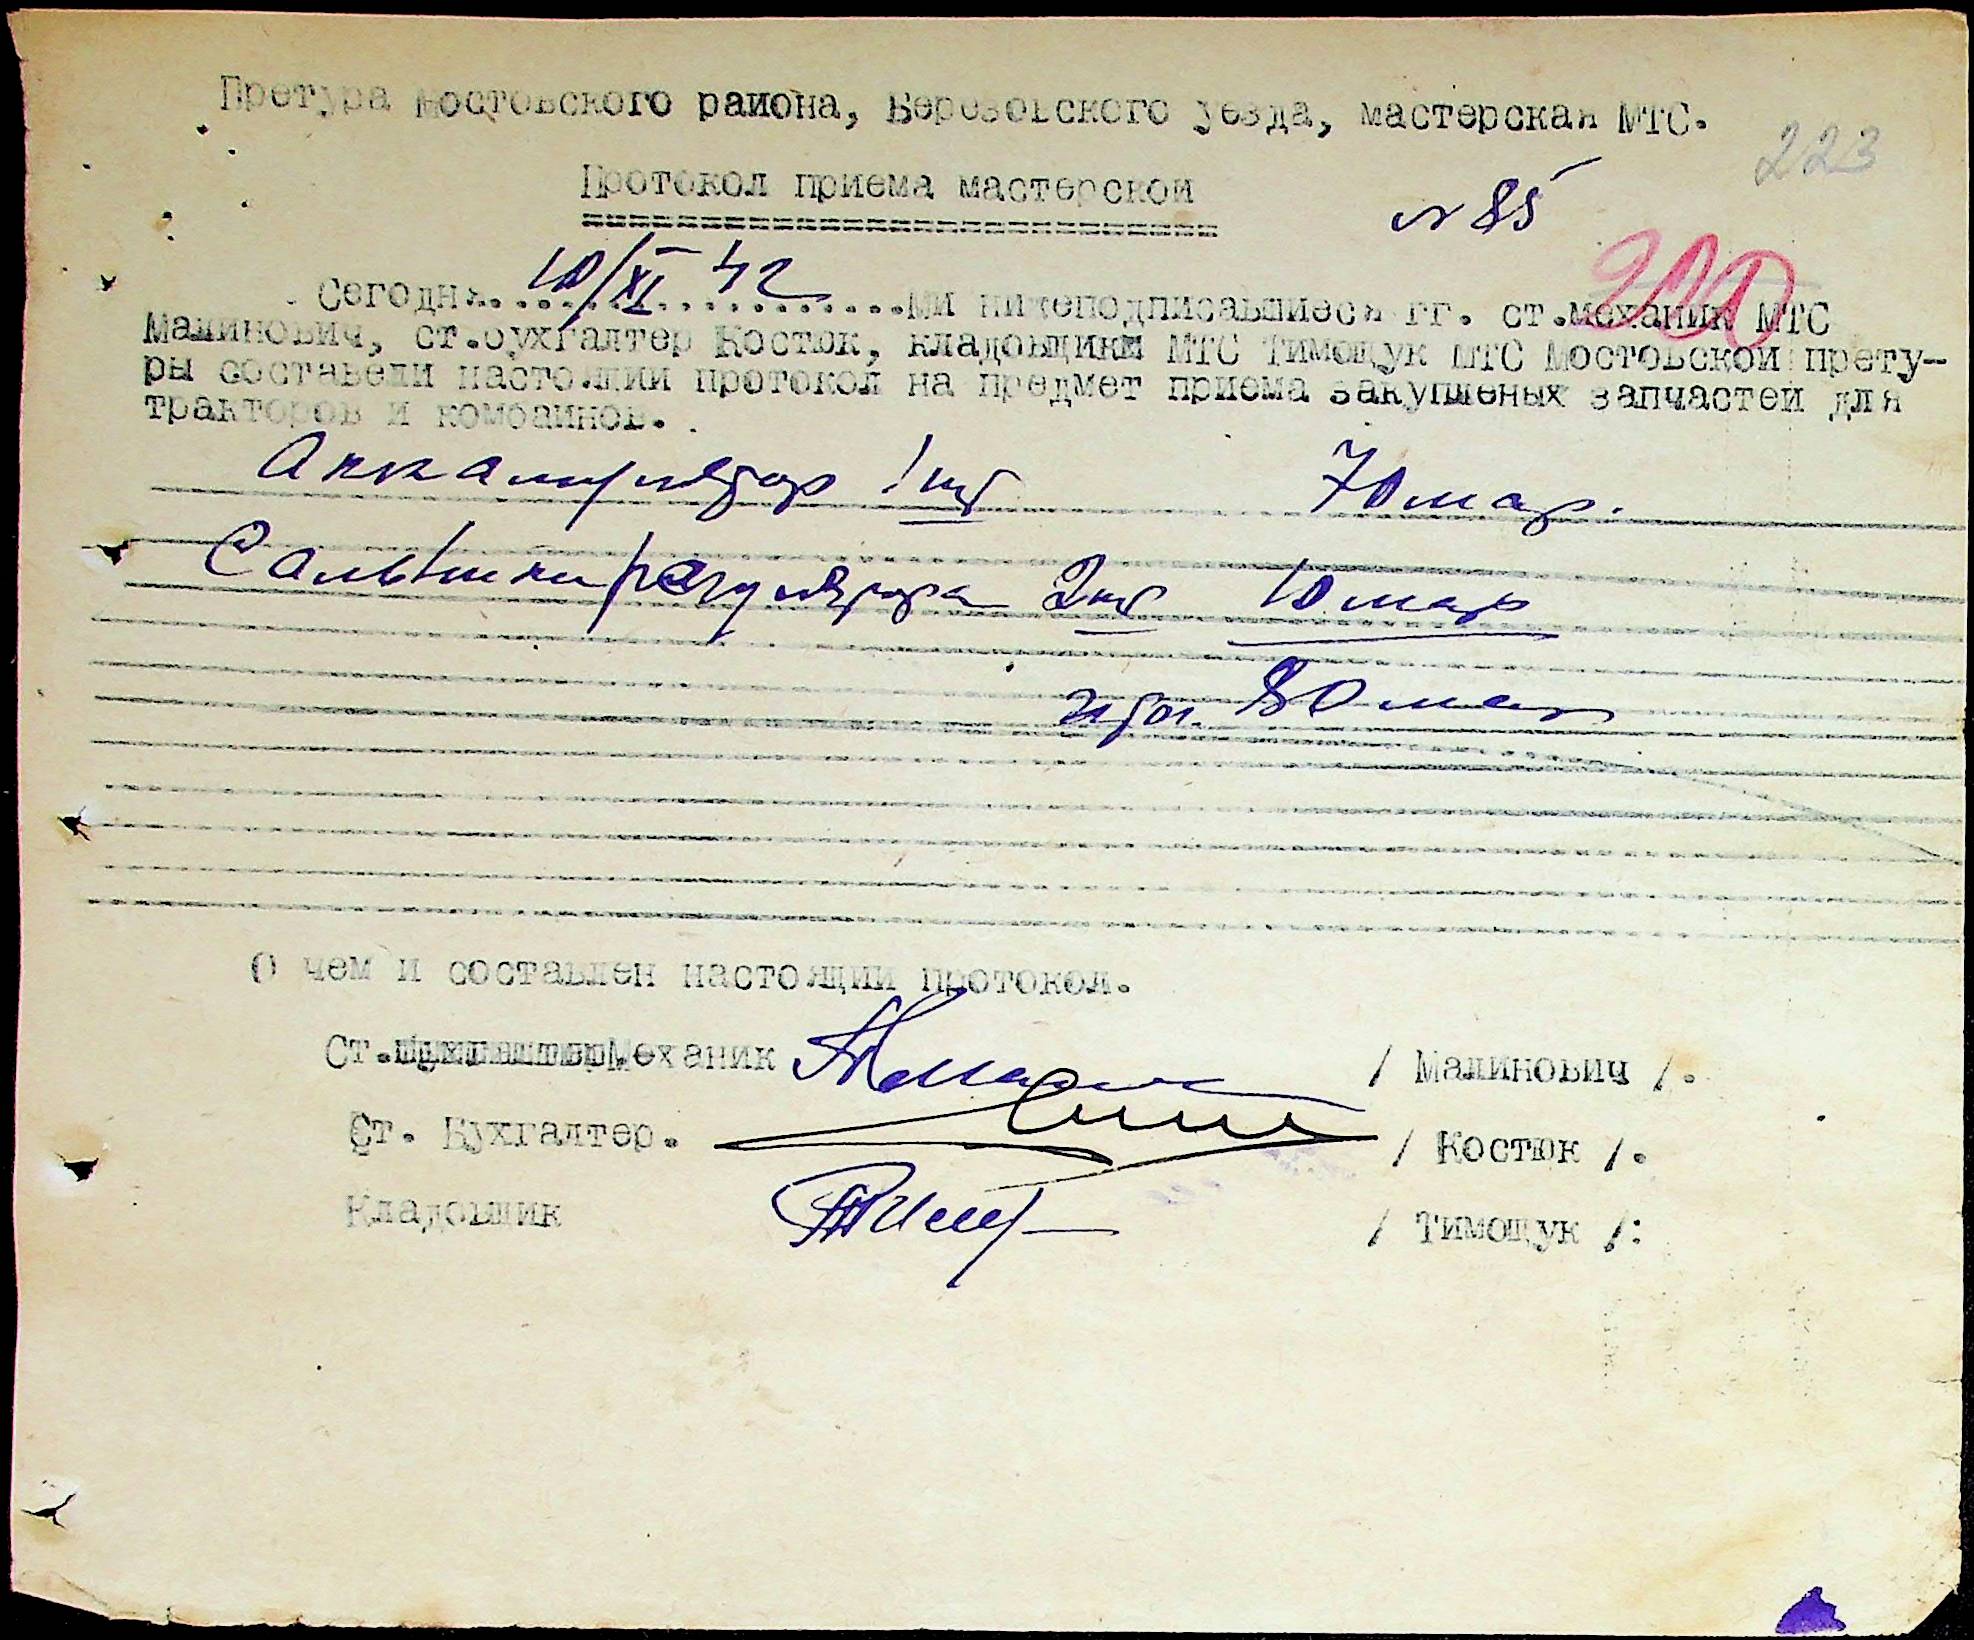 Претура Мостовского раиона, Березовского уезда, мастерская МТС.
223
Протокол приема мастерскои
№ 85
200
Сегодня 10/XI 42 ми нижеподписавшиеся гг. ст.механик МТС
Малинович, ст.бухгалтер Костюк, кладовщики МТС Тимощук МТС Мостовскои прету-
ры составели настоящии протокол на предмет приема закупшеных запчастеи для
тракторов и комбаинов.
Аккамулятор 1 шт 70 мар.
Сальники регулятора 2 шт 10 мар
итог. 80 мар
О чем и составлен настоящии протокол.
Ст. Механик / Малинович /.
Ст. Бухгалтер. / Костюк /.
Кладовщик / Тимощук /: